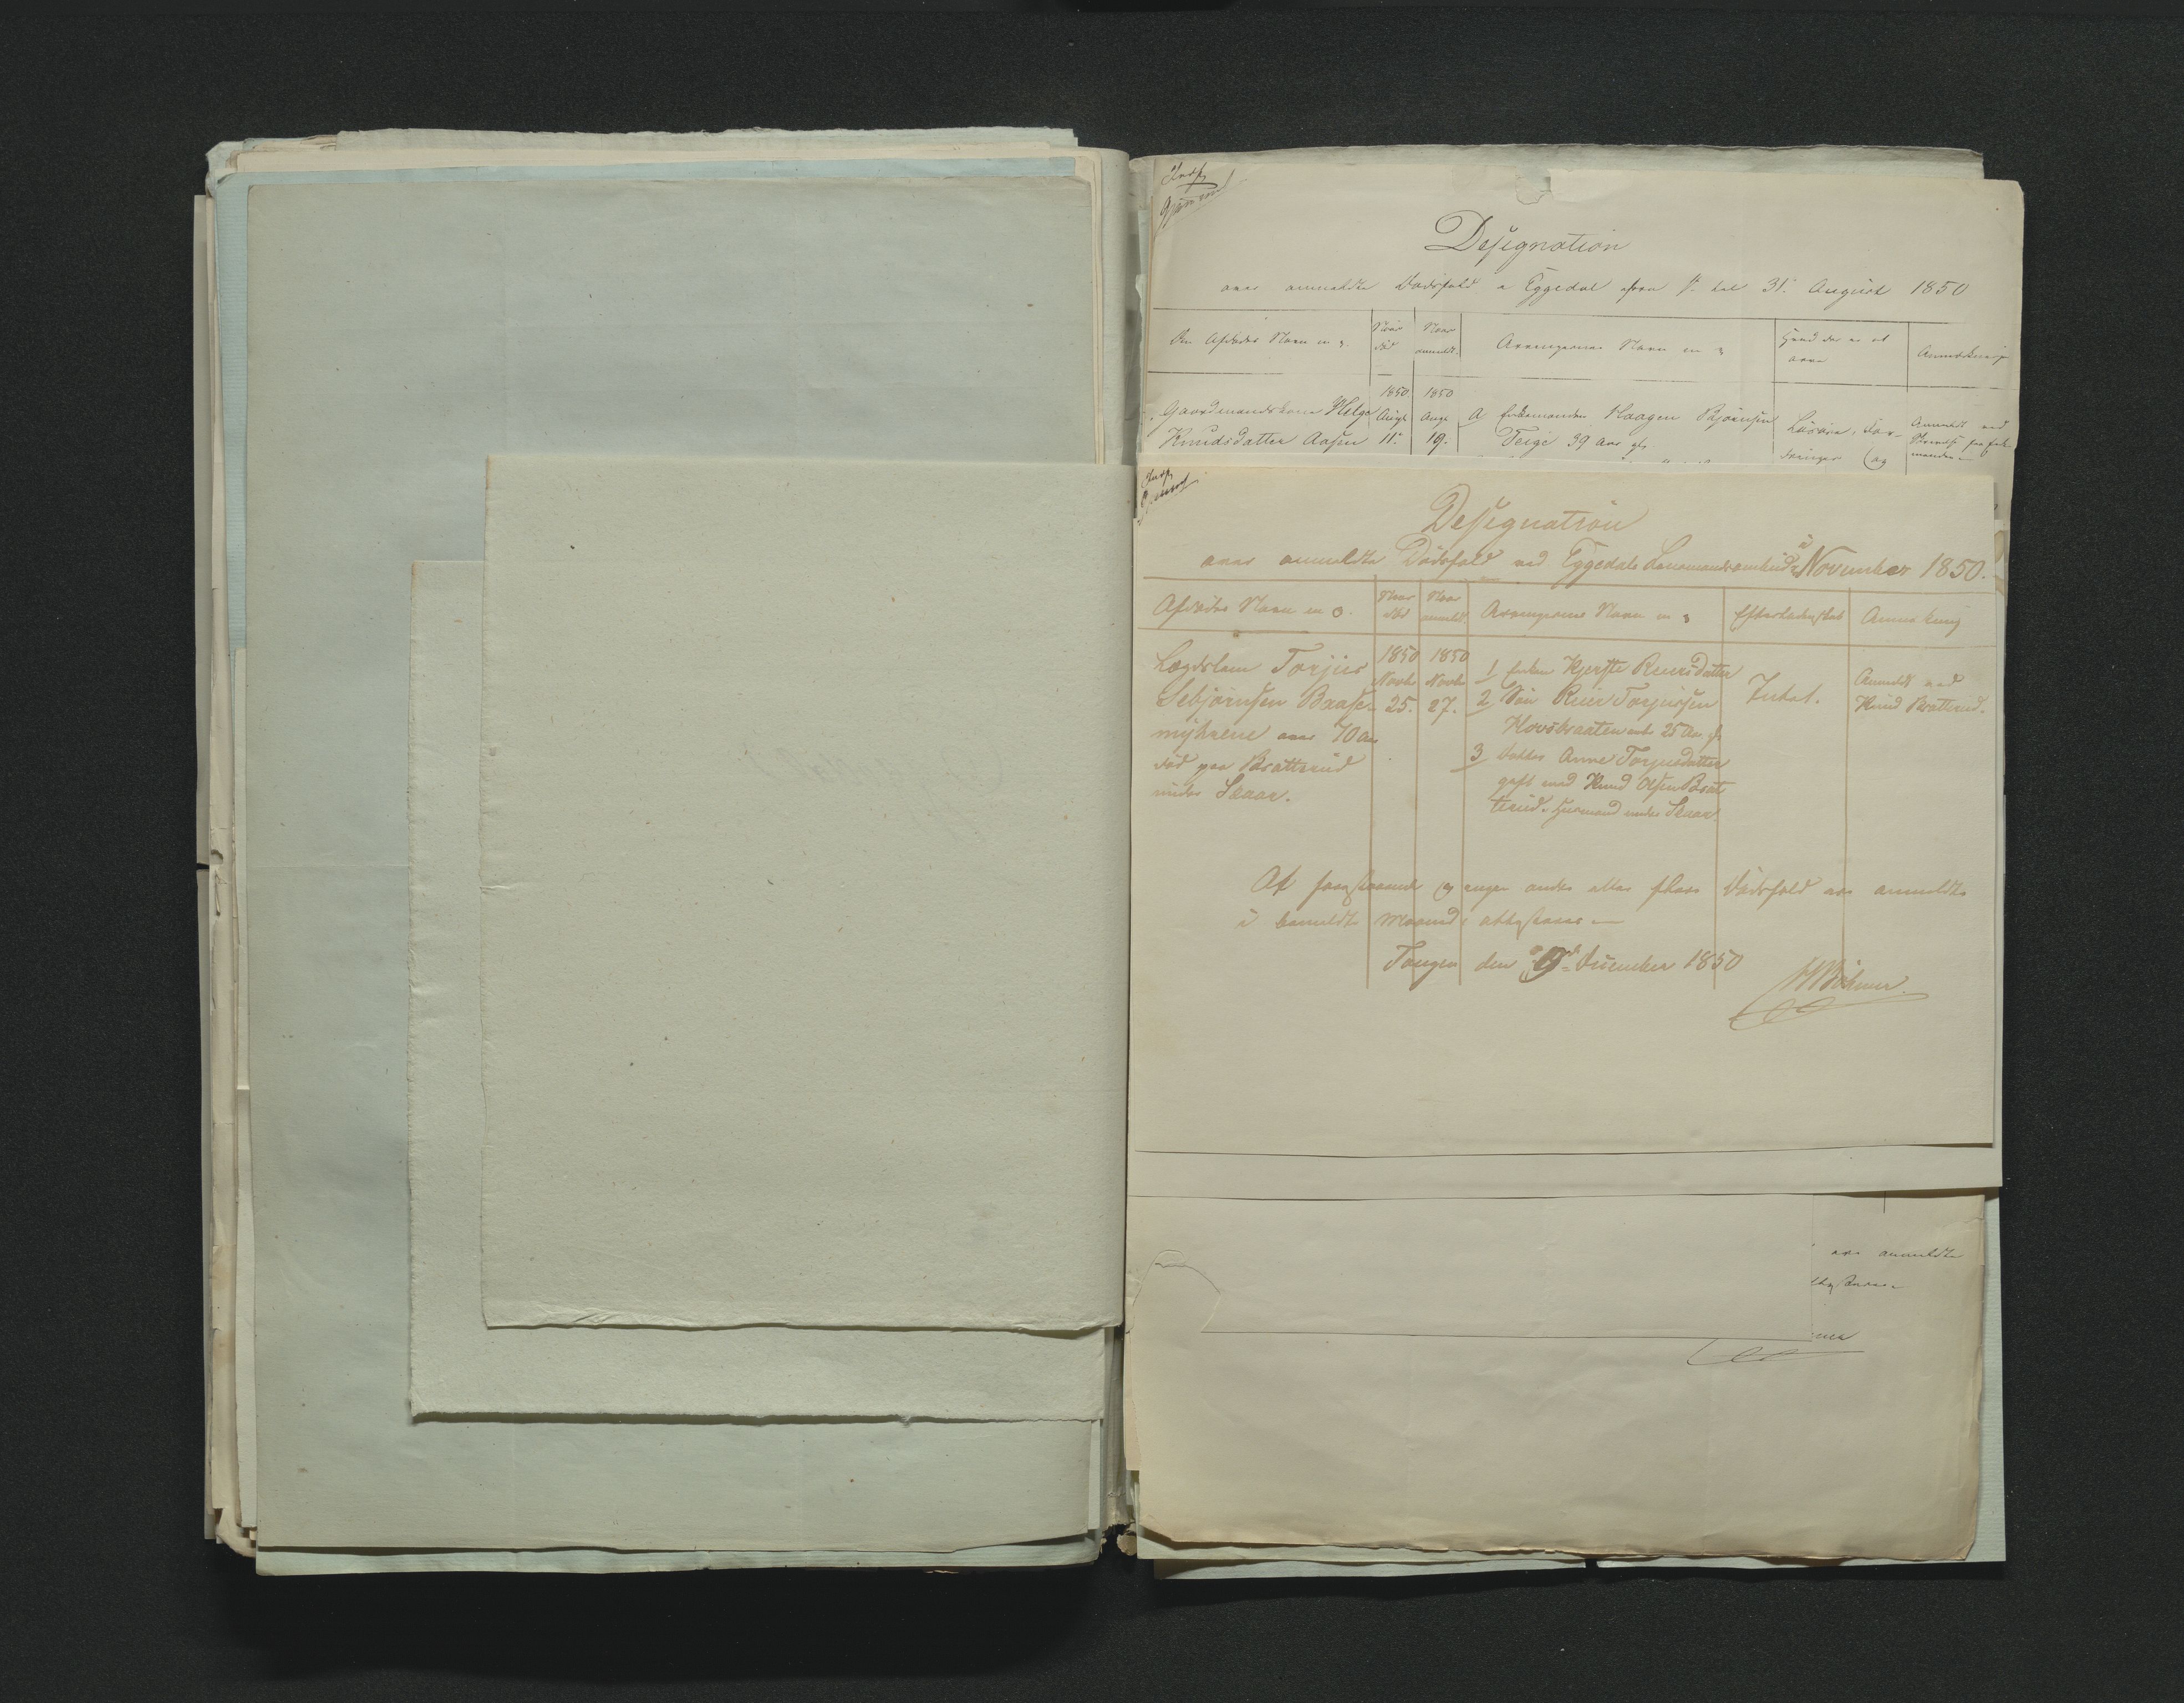 Designation
over anmeldte Dødsfald i Eggedal fra 1ste til 31te August 1850
Den Afdødes Navn m. v.
Naar død
Naar anmeldt
Arvingernes Navn m. v.
Hvad der er at arve
Anmærkning
Gaardmandskone Helge
Knudsdatter Aasen
1850
Augt
11te
1850
Augt
19.
Enkemanden Haagen Bjørnsen
Teige 39 Aar gl.
Løsøre, For-
dringer og
Anmeldt ved
Designation
over anmeldte Dødsfald ved Eggedals Lensmandsombud i November 1850.
Afdødes Navn m. v.
Naar død
Naar anmeldt
Arvingernes Navn m. v.
Efterladenskab
Anmærkning
Lægdslem Torjus
Sebjørnsen Braase-
myhrene over 70 Aar
død paa Bratterud
under Skaar.
1850
Novbr
25.
1850
Novbr
27.
1 Enken Kjersti Reiersdatter
2 Søn Reier Torjussen
Hovsbraaten 25 Aar gl.
3 Datter Anne Torjusdatter
gift med Knud Olsen Brat-
terud. Huusmand under Skaar.
Intet.
Anmeldt ved
Knud Bratterud.
At foregaaende og ingen andre eller flere Dødsfald ere anmeldte
i bemeldte Maaned attesteres
Tangen den 9de December 1850
Bøhmer.
ere anmeldte